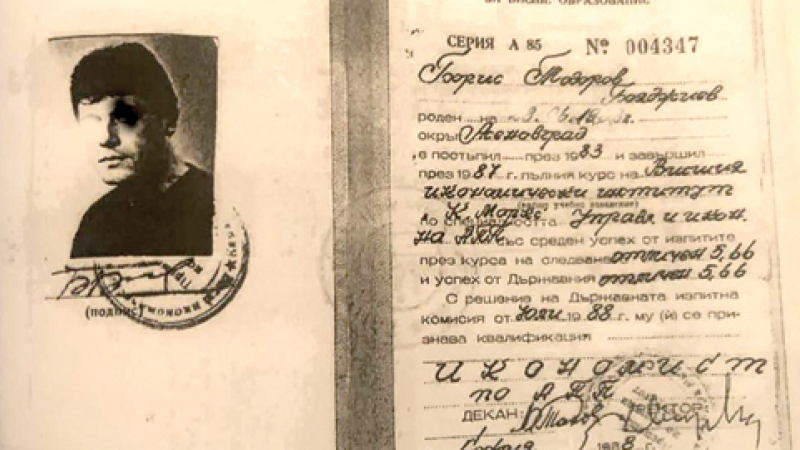 ЗА ВИСШЕ ОБРАЗОВАНИЕ
СЕРИЯ А 85 № 004347
Борис Тодоров
Бояджиев
роден на
окръг Ленинград
е постъпил през 1983 и завършил
през 1987 г. пълния курс на Висшия
икономически институт
(висше учебно заведение)
К. Маркс
По специалността Управл. и икон.
на АПП със среден успех от изпитите
през курса на следване отличен 5,66
и успех от Държавния отличен 5,66
С решение на Държавната изпитна
комисия от юли 1988 г. му (й) се при-
знава квалификация
Икономист
по АПП
ДЕКАН:
РЕКТОР
София 1988
(подпис)